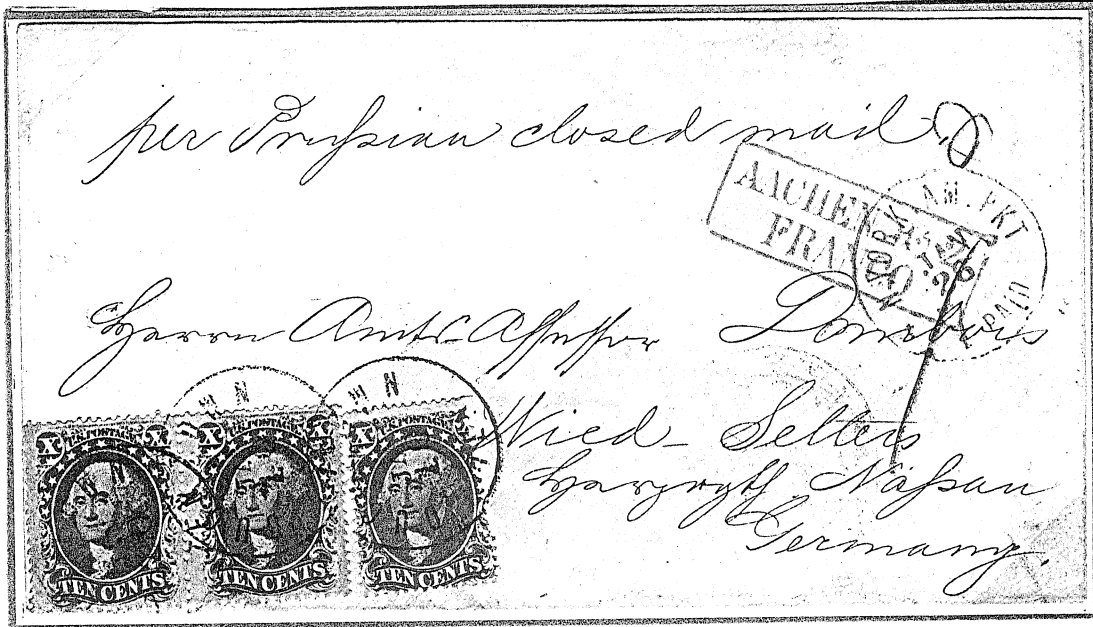 per Prußian closed mail
AACHEN
FRANCO
YORK AM. PKT
JAN
26
PAID
Herrn Amts-Assessor
Wied-Selters
Herzogth Naßau
Germany.
U.S. POSTAGE
X X
TEN CENTS
U.S. POSTAGE
X X
TEN CENTS
U.S. POSTAGE
X X
TEN CENTS